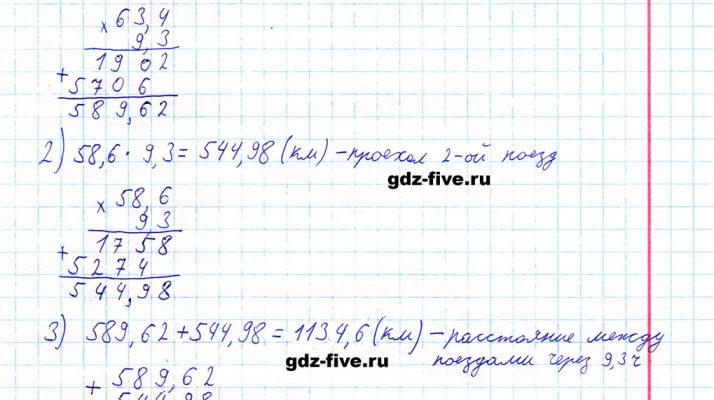 × 63,4
9,3
1902
+
5706
589,62
2) 58,6 · 9,3 = 544,98 (км) – проехал 2-ой поезд
gdz-five.ru
× 58,6
9,3
1758
+
5274
544,98
3) 589,62 + 544,98 = 1134,6 (км) – расстояние между
поездами через 9,3 ч
gdz-five.ru
+ 589,62
544,98